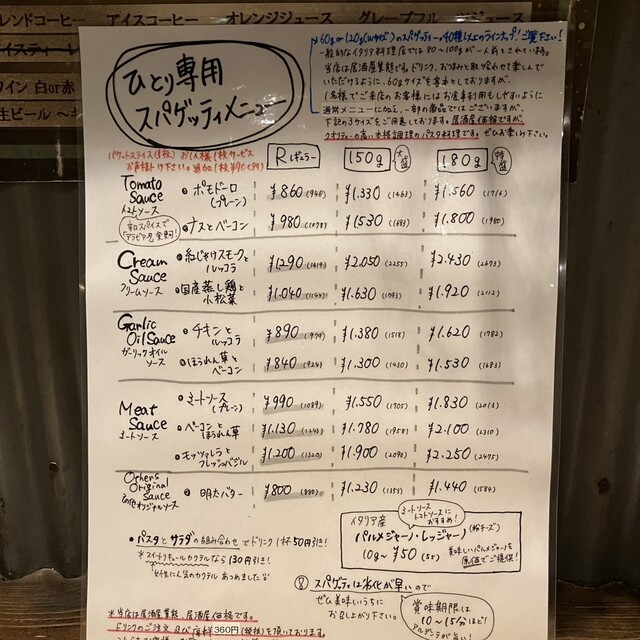 レンドコーヒー アイスコーヒー オレンジジュース グレープフルーツジュース
ワイン 白or赤
生ビール
ひとり専用
スパゲッティメニュー
一般的なイタリア料理店では80〜100gが一人前とされています。
当店は居酒屋業態です。ドリンク、おつまみと取り合わせて楽しんで
いただけるように、60gサイズを基本としておりますが、
1名様でご来店のお客様にはお食事利用もしやすいように
通常メニューに加え、一部の商品ではございますが、
下記の3サイズをご用意しております。居酒屋価格ですが
クオリティーの高い本格調理のパスタ料理です。ぜひお楽しみ下さい。
バケットスライス(1枚) お1人様1枚サービス
お声掛け下さい。追加1枚¥90(99)
Rレギュラー 150g 大盛 180g 特盛
Tomato Sauce トマトソース
辛口スパイスで
"アラビアータ"変則!
・ポモドーロ(プレーン) ¥860(946) ¥1.330(1463) ¥1.560(1716)
・ナスとベーコン ¥980(1078) ¥1530(1683) ¥1.800(1980)
Cream Sauce クリームソース
・紅じゃけスモークとルッコラ ¥1.290(1419) ¥2.050(2255) ¥2.430(2673)
・国産蒸し鶏と小松菜 ¥1.040(1144) ¥1.630(1793) ¥1.920(2112)
Garlic Oil Sauce ガーリックオイルソース
・チキンとルッコラ ¥890(979) ¥1.380(1518) ¥1.620(1782)
・ほうれん草とベーコン ¥840(924) ¥1.300(1430) ¥1.530(1683)
Meat Sauce ミートソース
・ミートソース(プレーン) ¥990(1089) ¥1.550(1705) ¥1.830(2013)
・ベーコンとほうれん草 ¥1.130(1243) ¥1.780(1958) ¥2.100(2310)
・モッツァレラとフレッシュバジル ¥1.200(1320) ¥1.900(2090) ¥2.250(2475)
Others Original Sauce
・明太バター ¥800(880) ¥1.230(1353) ¥1.440(1584)
・パスタとサラダの組み合わせでドリンク1杯50円引き!
*スイートリキュールカクテルなら130円引き!
女性に人気のカクテルあつめました
ミートソース
トマトソースに
おすすめ!
イタリア産
パルメジャーノ・レッジャーノ(粉チーズ)
10g〜 ¥50(55)
美味しいパルメジャーノを
原価でご提供!
スパゲティは劣化が早いので
ぜひ美味しいうちに
お召し上がり下さい。
賞味期限は
10〜15分ほど!
アルデンテが旨い!
*当店は居酒屋業態、居酒屋価格です。
ドリンクのご注文及び席料360円(税抜)を頂いております。